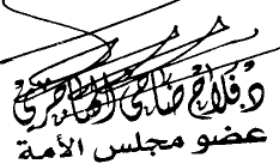 د. فلاح ضاحي الهاجري
عضو مجلس الأمة